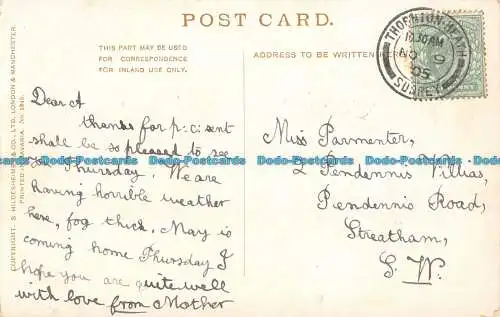 POST CARD.
THIS PART MAY BE USED
FOR CORRESPONDENCE
FOR INLAND USE ONLY.
ADDRESS TO BE WRITTEN HERE
THORNTON HEATH
10.30AM
NO 10
05
SURREY
COPYRIGHT. S. HILDESHEIMER & CO., LTD. LONDON & MANCHESTER.
PRINTED BAVARIA. No.
Dear A
thanks for p:c: sent
shall be so pleased to see
you Thursday. We are
having horrible weather
here, fog thick. May is
coming home Thursday I
hope you are quite well
with love from Mother
Miss Parmenter,
2 Pendennis Villias,
Pendennis Road,
Streatham,
S. W.
Dodo-Postcards Dodo-Postcards Dodo-Postcards Dodo-Postcards Dodo-Postcards